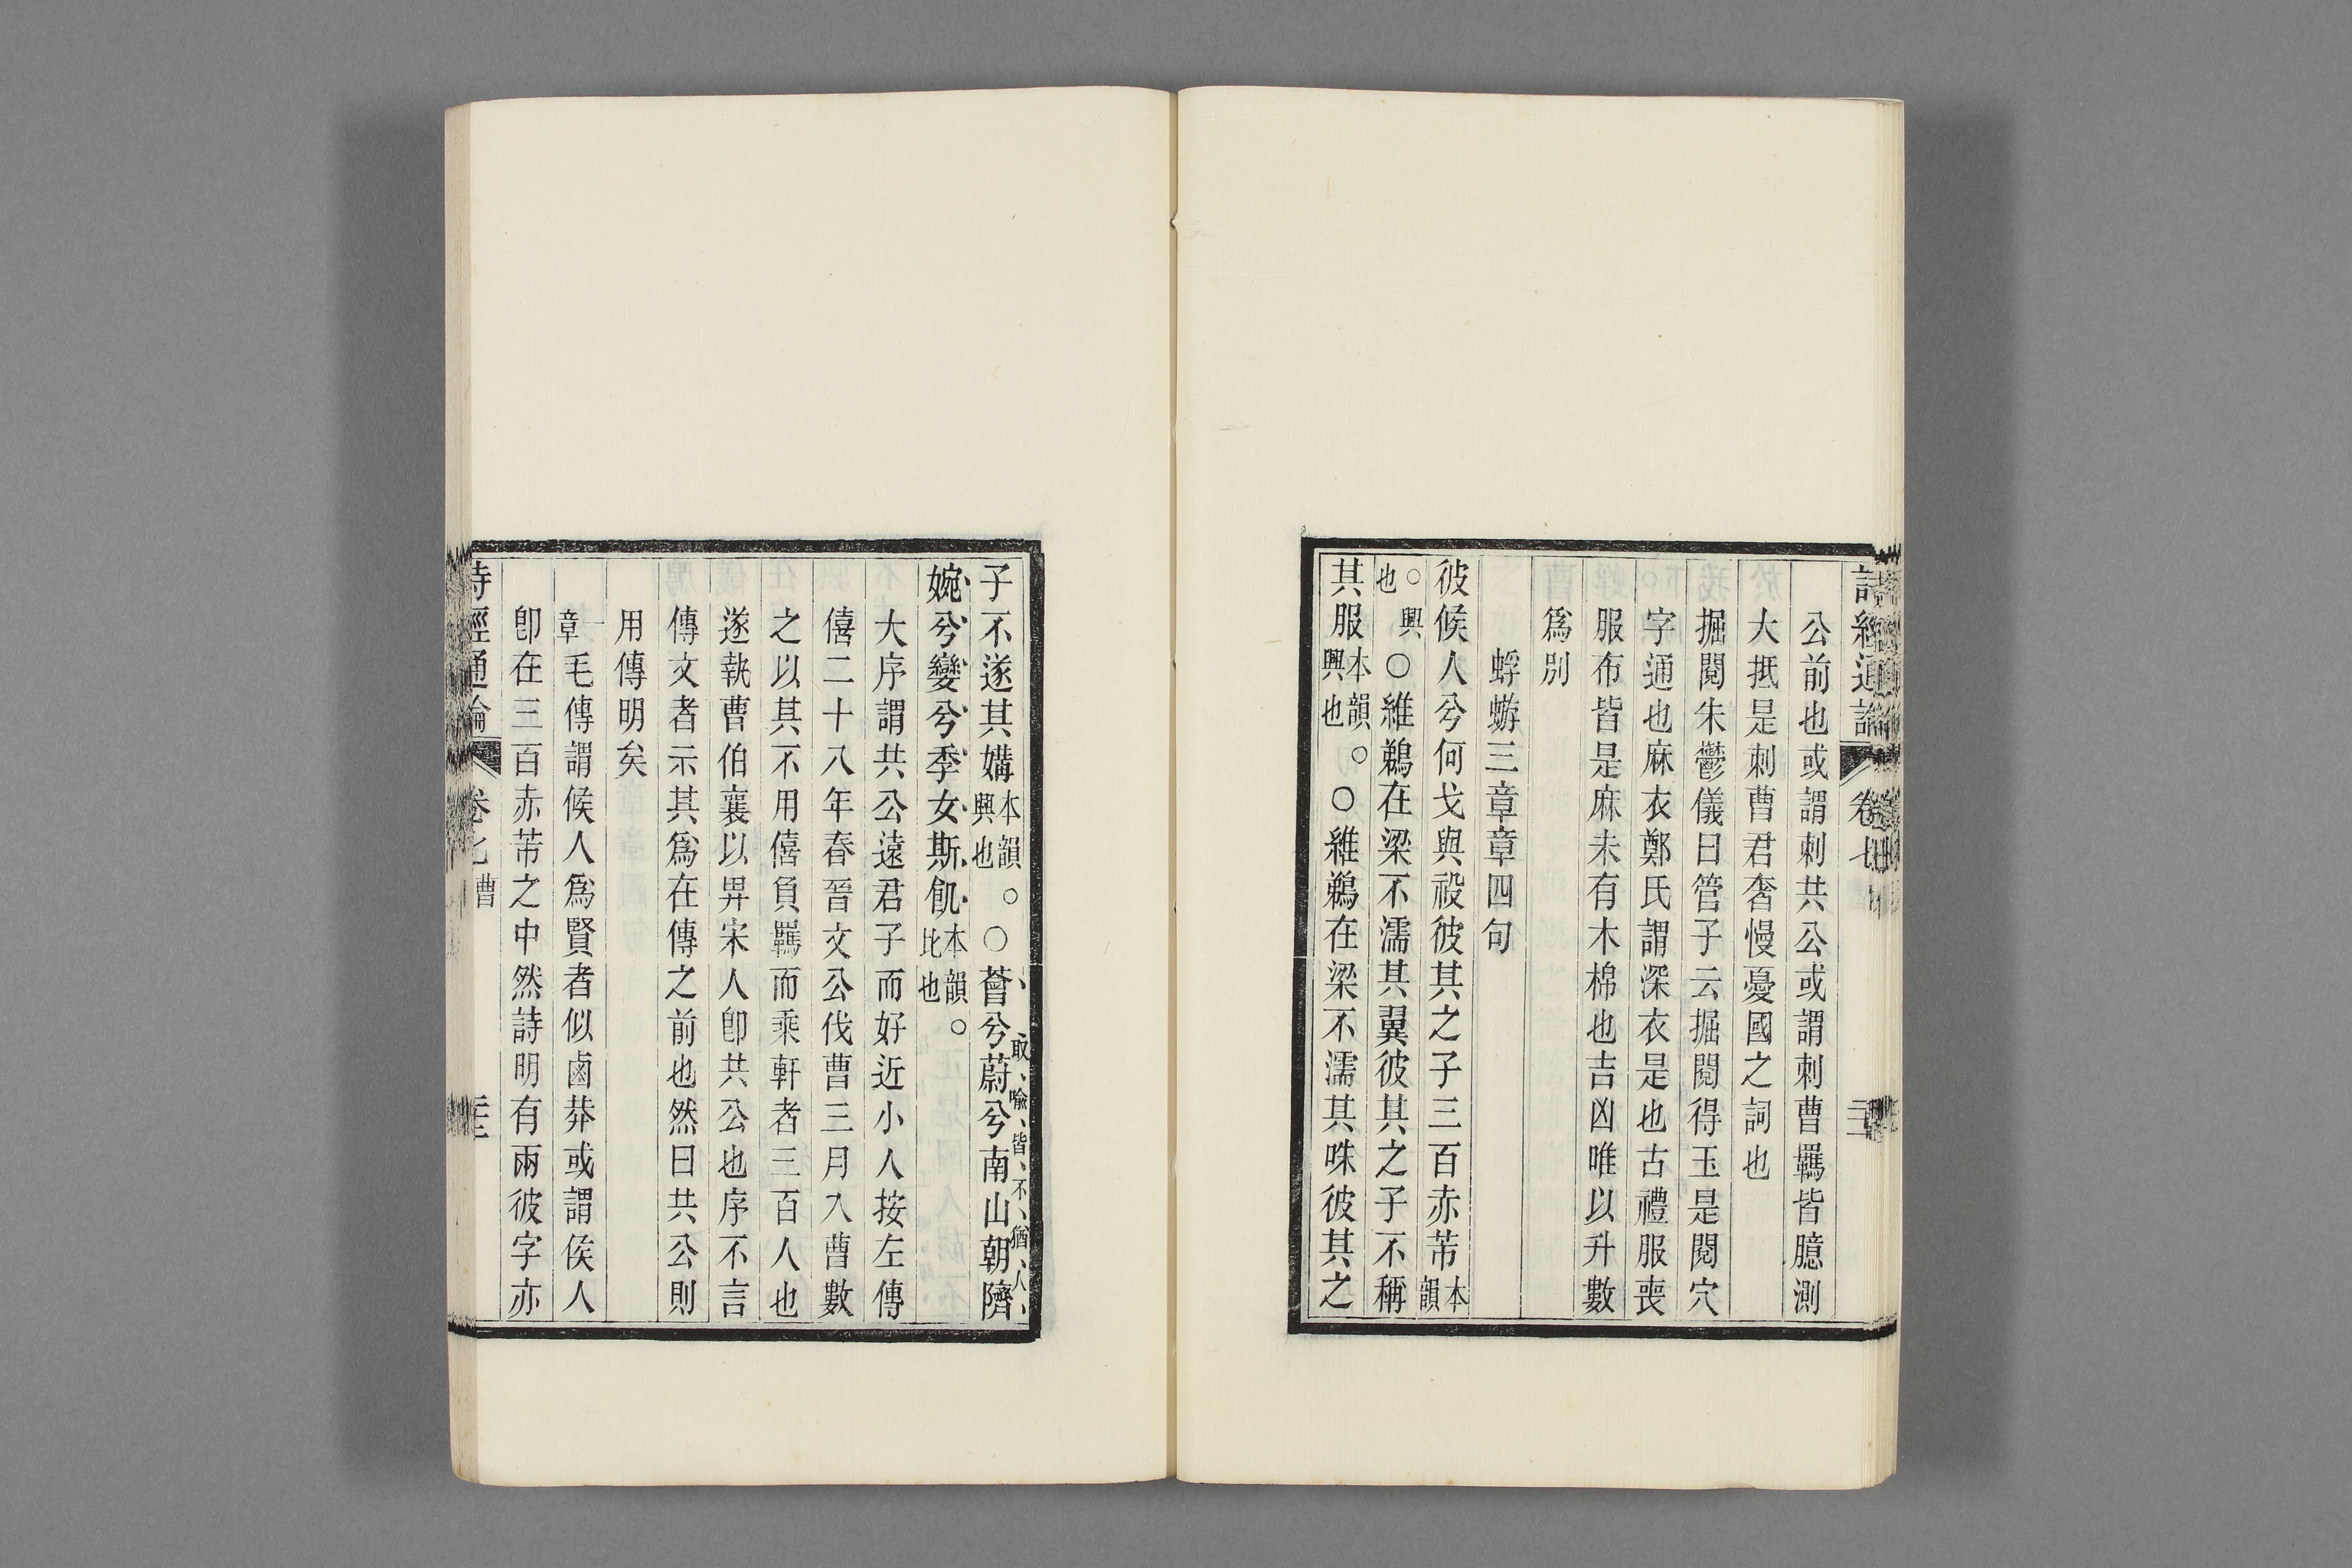 詩經通論 卷七 三
公前也或謂刺共公或謂刺曹羈皆臆測
大抵是刺曹君奢慢憂國之詞也
掘閱朱鬱儀曰管子云掘閱得玉是閱穴
字通也麻衣鄭氏謂深衣是也古禮服喪
服布皆是麻未有木棉也吉凶唯以升數
爲別
蜉蝣三章章四句
彼候人兮何戈與祋彼其之子三百赤芾本韻
。興也○維鵜在梁不濡其翼彼其之子不稱
其服本韻。興也○維鵜在梁不濡其咮彼其之
子不遂其媾本韻。興也○薈兮蔚兮南山朝隮
取喩皆不猶人
婉兮孌兮季女斯飢本韻。比也
大序謂共公遠君子而好近小人按左傳
僖二十八年春晉文公伐曹三月入曹數
之以其不用僖負羈而乘軒者三百人也
遂執曹伯襄以畀宋人卽共公也序不言
傳文者示其爲在傳之前也然曰共公則
用傳明矣
一章毛傳謂候人爲賢者似鹵莽或謂侯人
卽在三百赤芾之中然詩明有兩彼字亦
詩經通論 卷七 曹